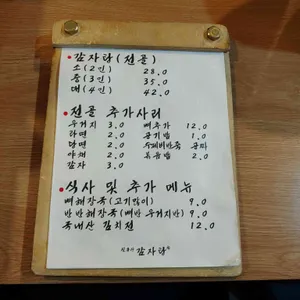 감자탕(전골)
소(2인) 28.0
중(3인) 35.0
대(4인) 42.0
전골 추가사리
우거지 3.0 뼈추가 12.0
라면 2.0 공기밥 1.0
당면 2.0 수제비반죽 공짜
야채 2.0 볶음밥 2.0
감자 3.0
식사 및 추가 메뉴
뼈해장국(고기많이) 9.0
반반해장국(뼈반 우거지반) 9.0
국내산 김치전 12.0
감자탕